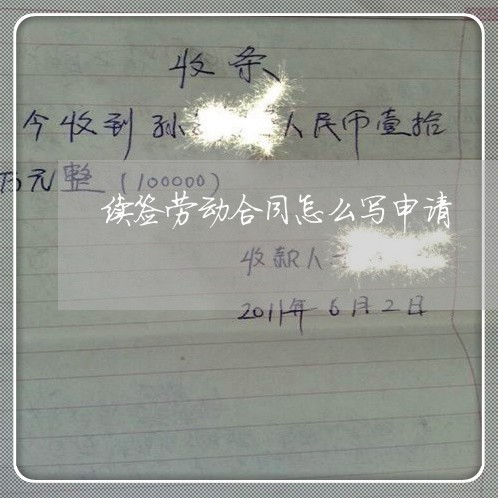 收条
今收到孙 人民币壹拾
万元整（100000）
续签劳动合同怎么写申请
收款人
2011年6月2日